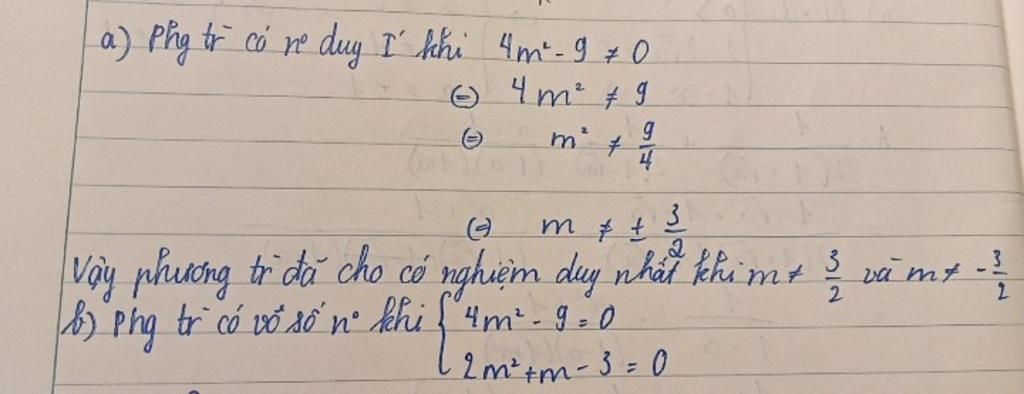 a) Phg tr̀ có n⁰ duy I' khi 4m² - 9 ≠ 0
(=) 4m² ≠ 9
(=) m² ≠ 9/4
(=) m ≠ ± 3/2
Vậy phương tr̀ đã cho có nghiệm duy nhất khi m ≠ 3/2 và m ≠ -3/2
b) Phg tr̀ có vô số n⁰ khi { 4m² - 9 = 0
2m² + m - 3 = 0